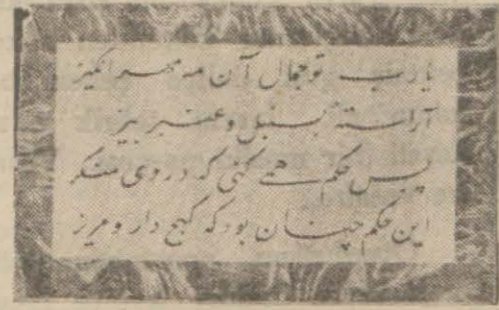 یارب تو جمال آن مه مهر انگیز
آراسته بسنبل و عنبر بیز
پس حکم همے کنی که در وی منگر
این حکم چنان بود که کج دار و مریز